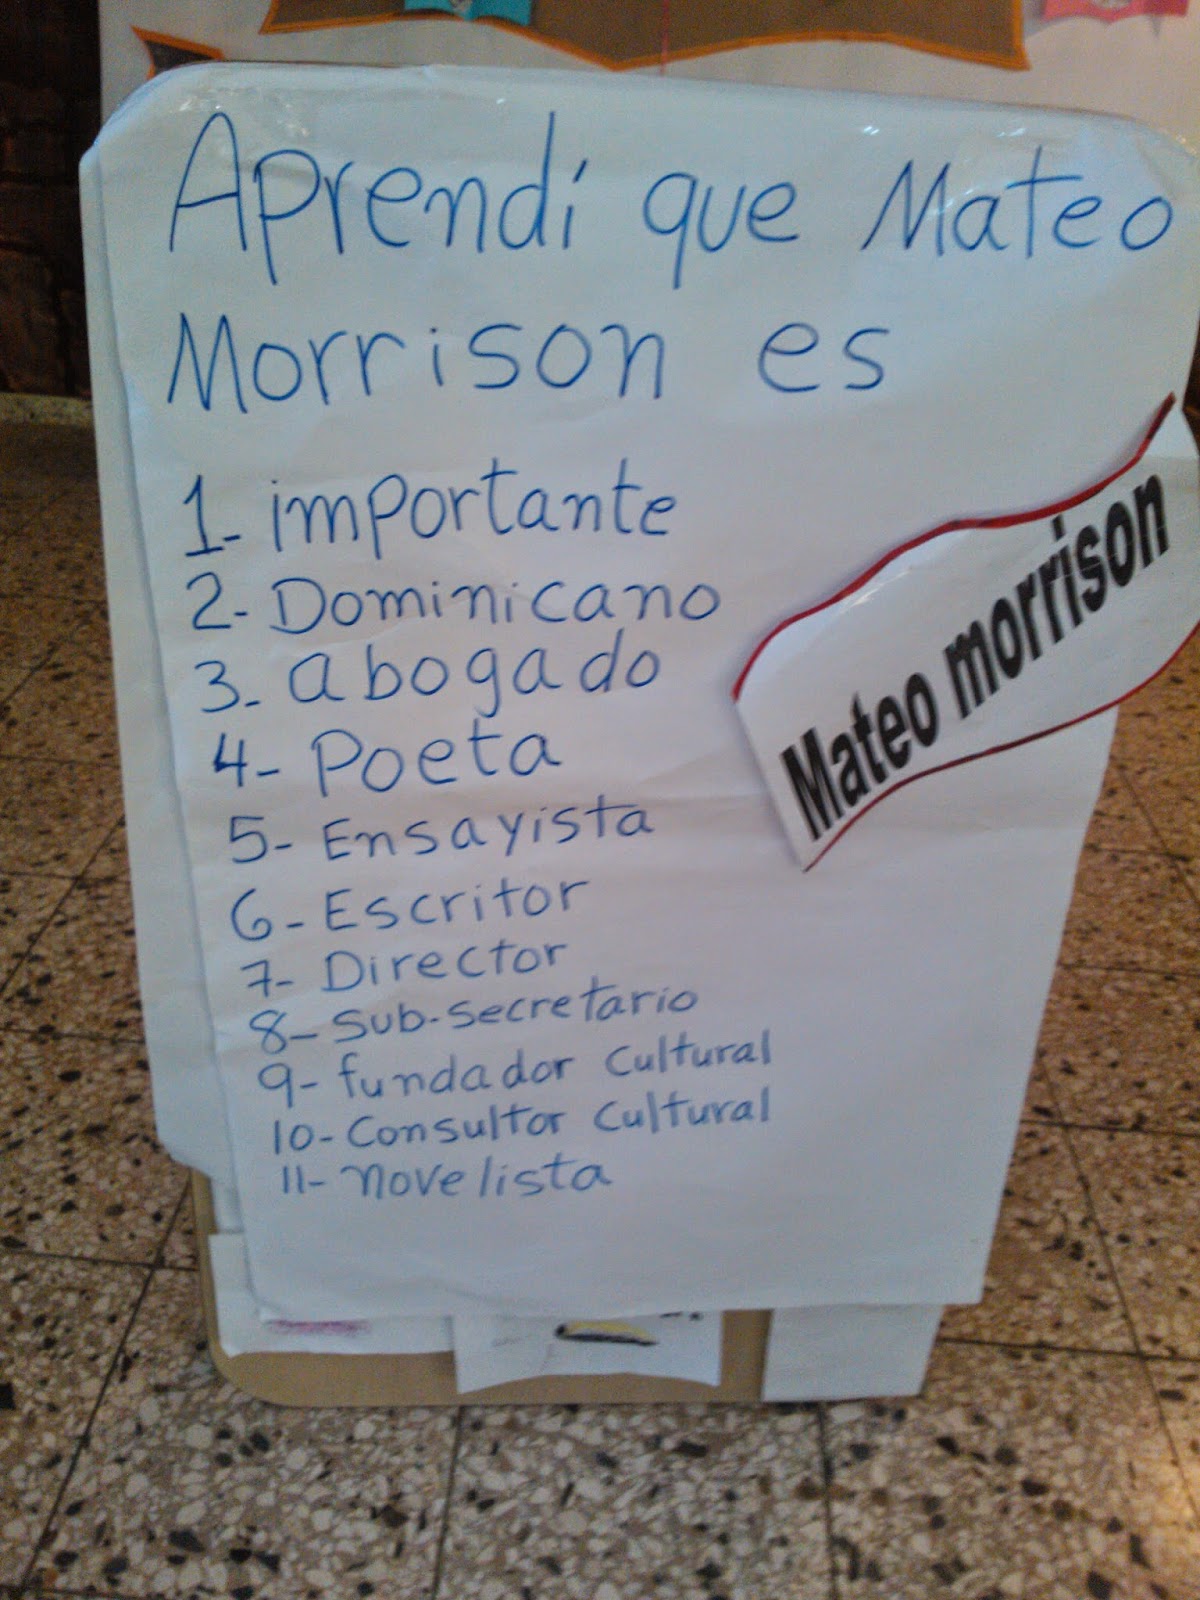 Aprendí que Mateo
Morrison es
1- importante
2- Dominicano
3- abogado
4- Poeta
5- Ensayista
6- Escritor
7- Director
8- Sub-secretario
9- fundador cultural
10- Consultor cultural
11- novelista
Mateo morrison